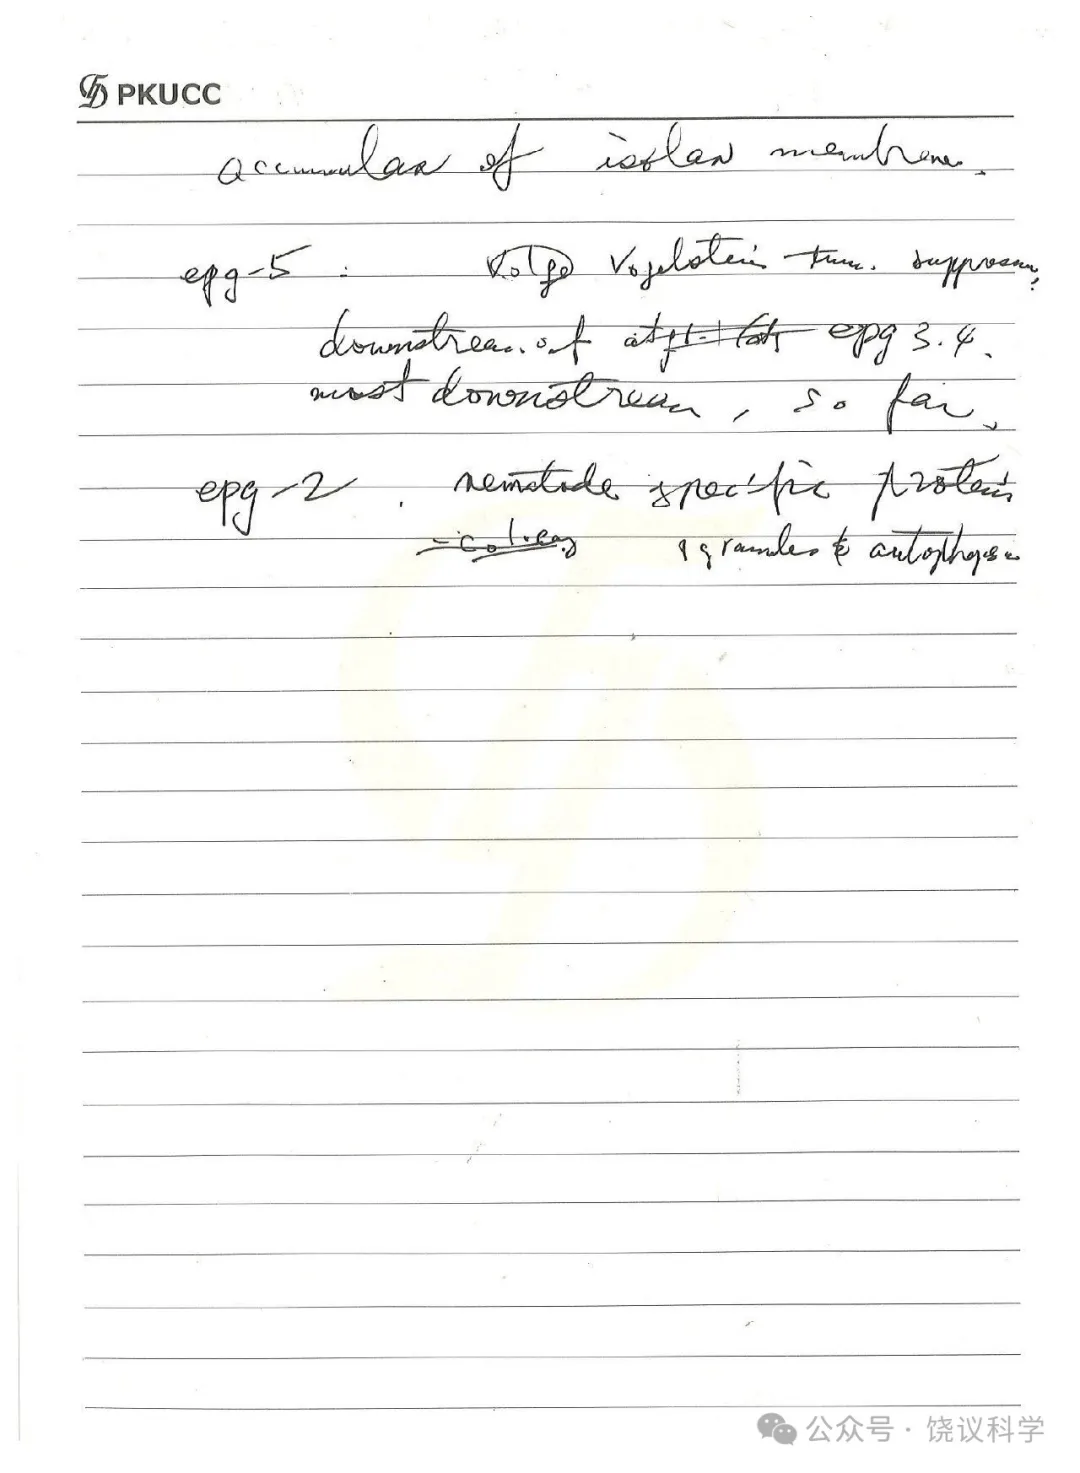 PKUCC
accumulan of isolan membrane.
epg-5 : Vogelstein tum. suppressor,
downstream of epg 3.4.
most downstream, so far,
epg-2 . nematode specific protein
granules & autophagos
公众号 · 饶议科学